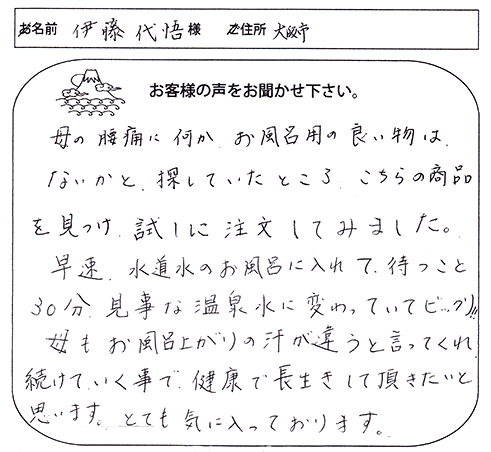 お名前 伊藤 代悟 様 ご住所 大阪市
お客様の声をお聞かせ下さい。
母の腰痛に何か、お風呂用の良い物は、
ないかと、探していたところ、こちらの商品
を見つけ、試しに注文してみました。
早速、水道水のお風呂に入れて、待つこと
30分、見事な温泉水に変わっていてビックリ!!
母もお風呂上がりの汗が違うと言ってくれ
続けていく事で、健康で長生きして頂きたいと
思います。とても気に入っております。